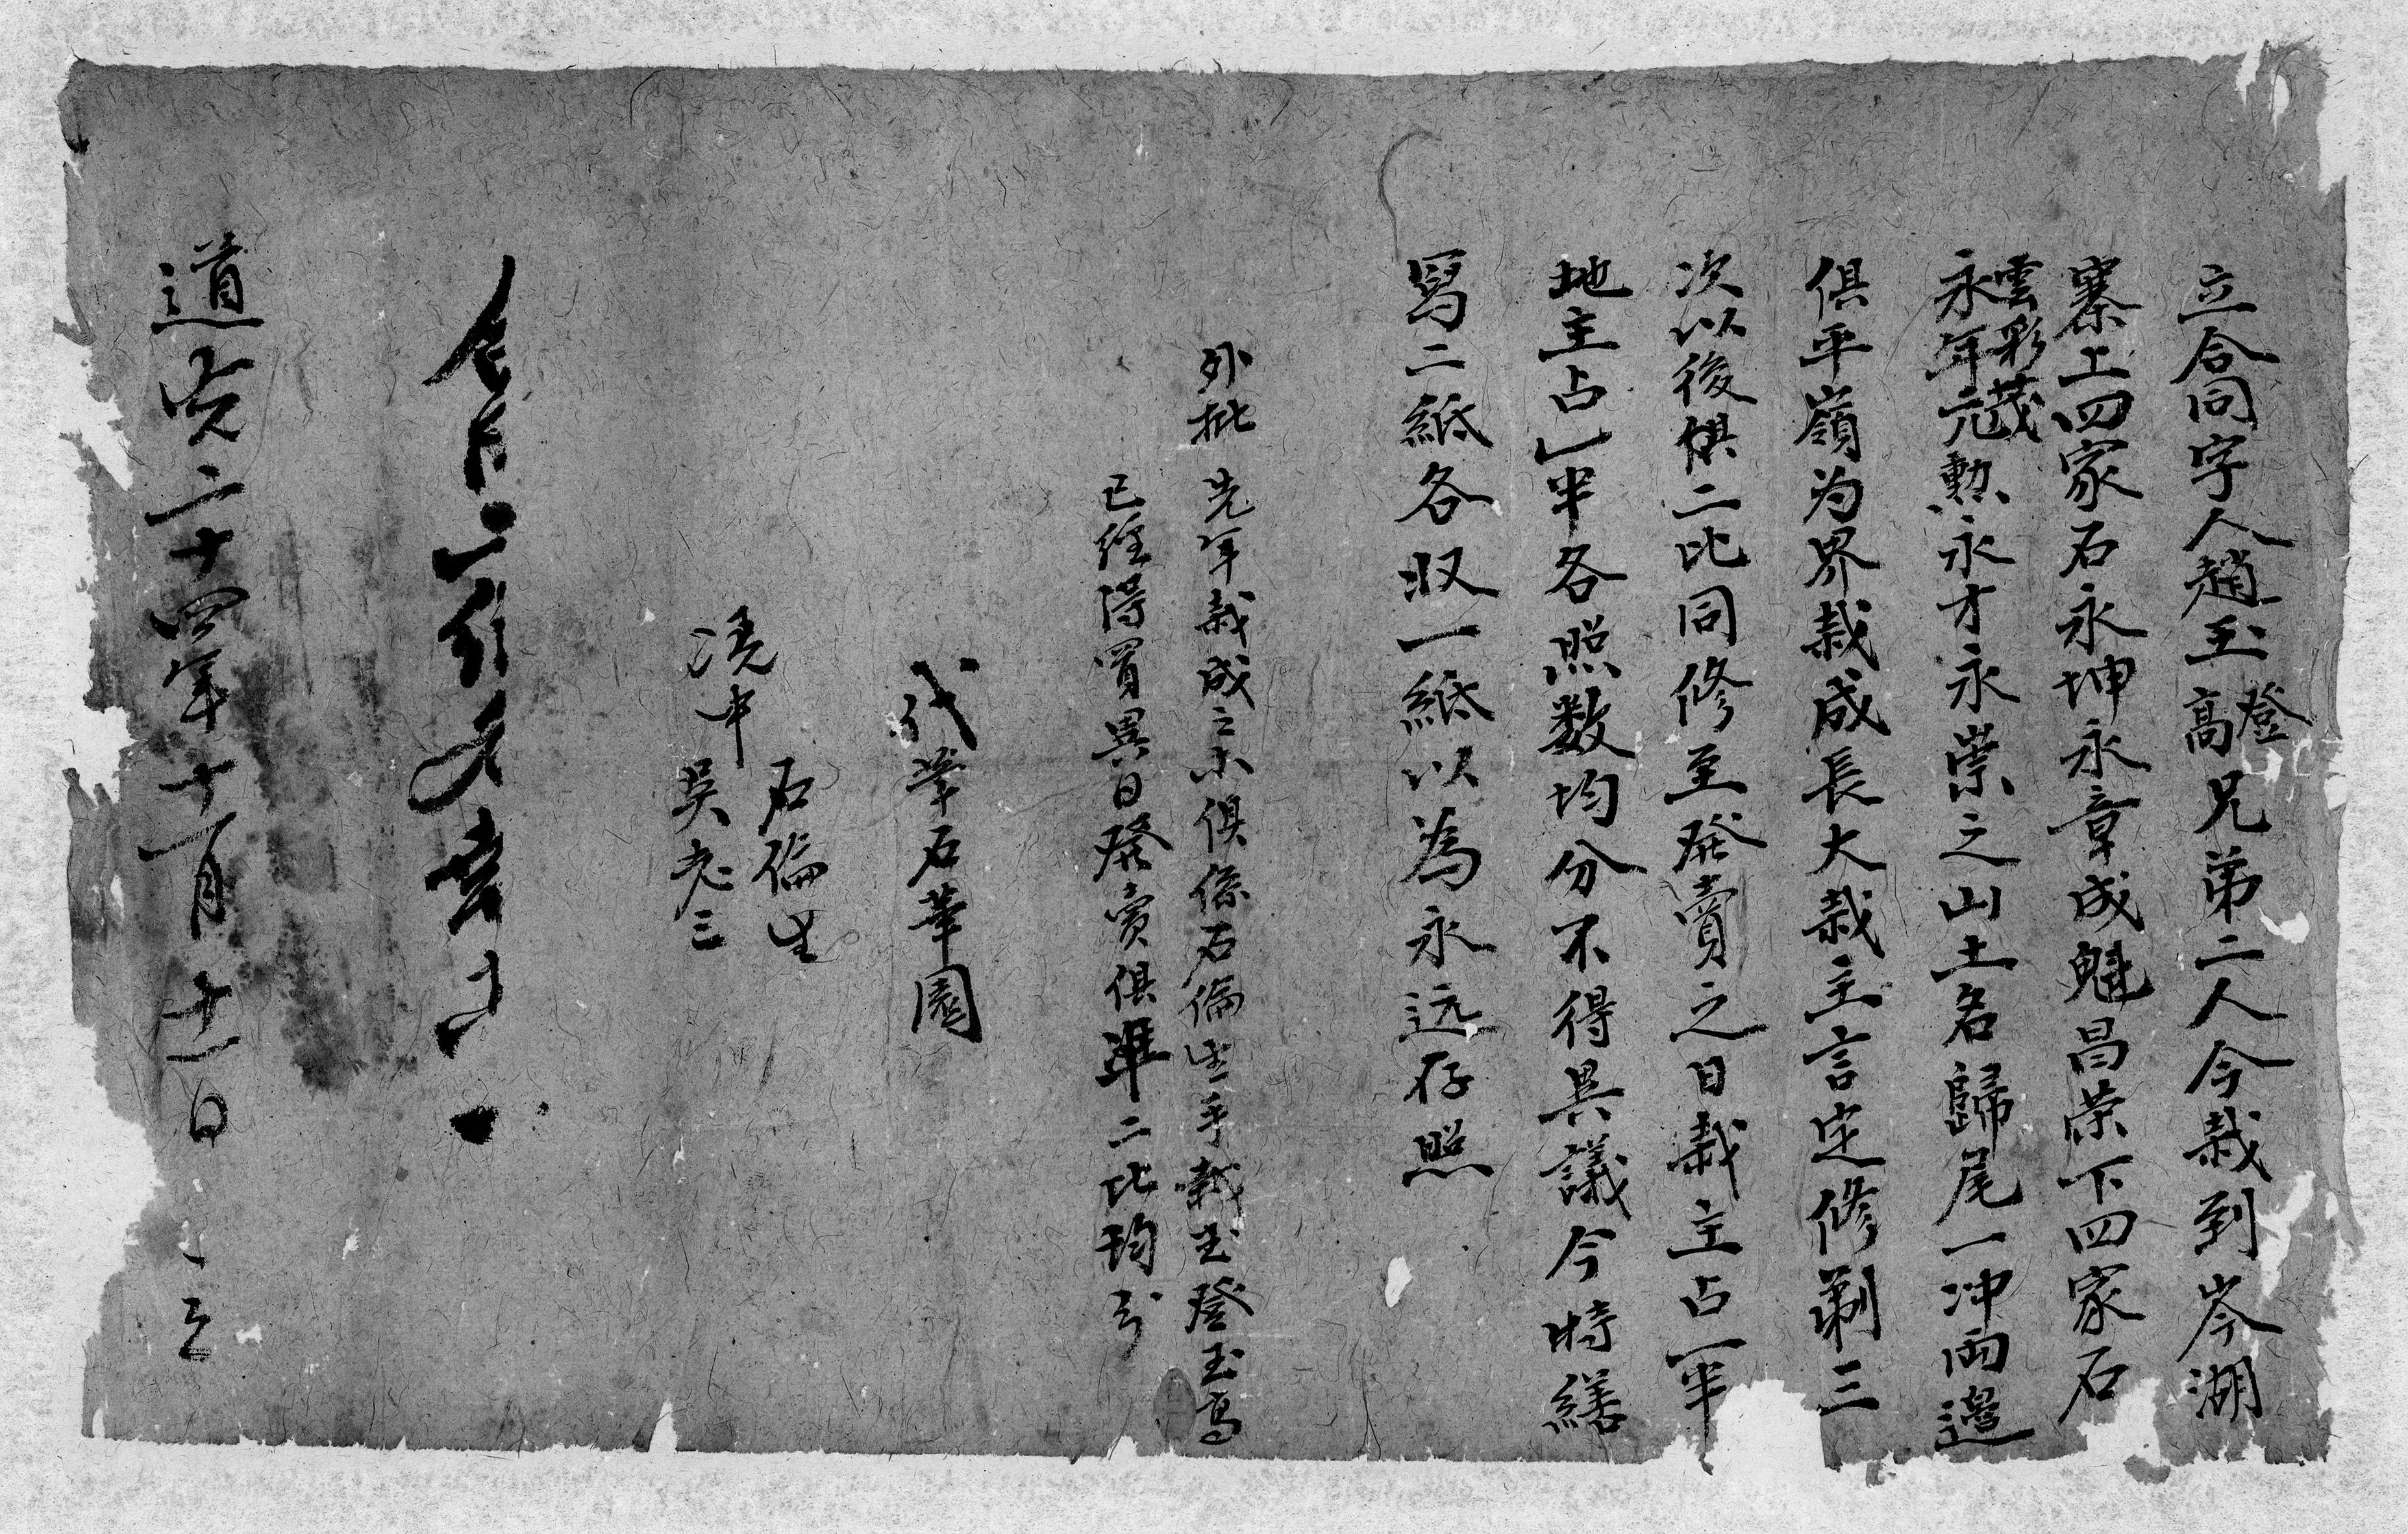 立合同字人趙玉登高兄弟二人今栽到岑湖
寨上四家石永坤永章成魁昌荣下四家石
雲彩茂
永年元勲永才永崇之山土名歸尾一冲両邉
俱平嶺为界栽成長大栽主言定修剃三
次以後俱二比同修至発賣之日栽主占一半
地主占一半各照数均分不得異議今時繕
寫二紙各収一紙以為永远存照
外批 先年栽成之木俱係石倫生手栽玉登玉高
已經得買異日發賣俱準二比均分
代筆石華園
憑中 石倫生
吳老三
道光二十四年十一月十一日 立